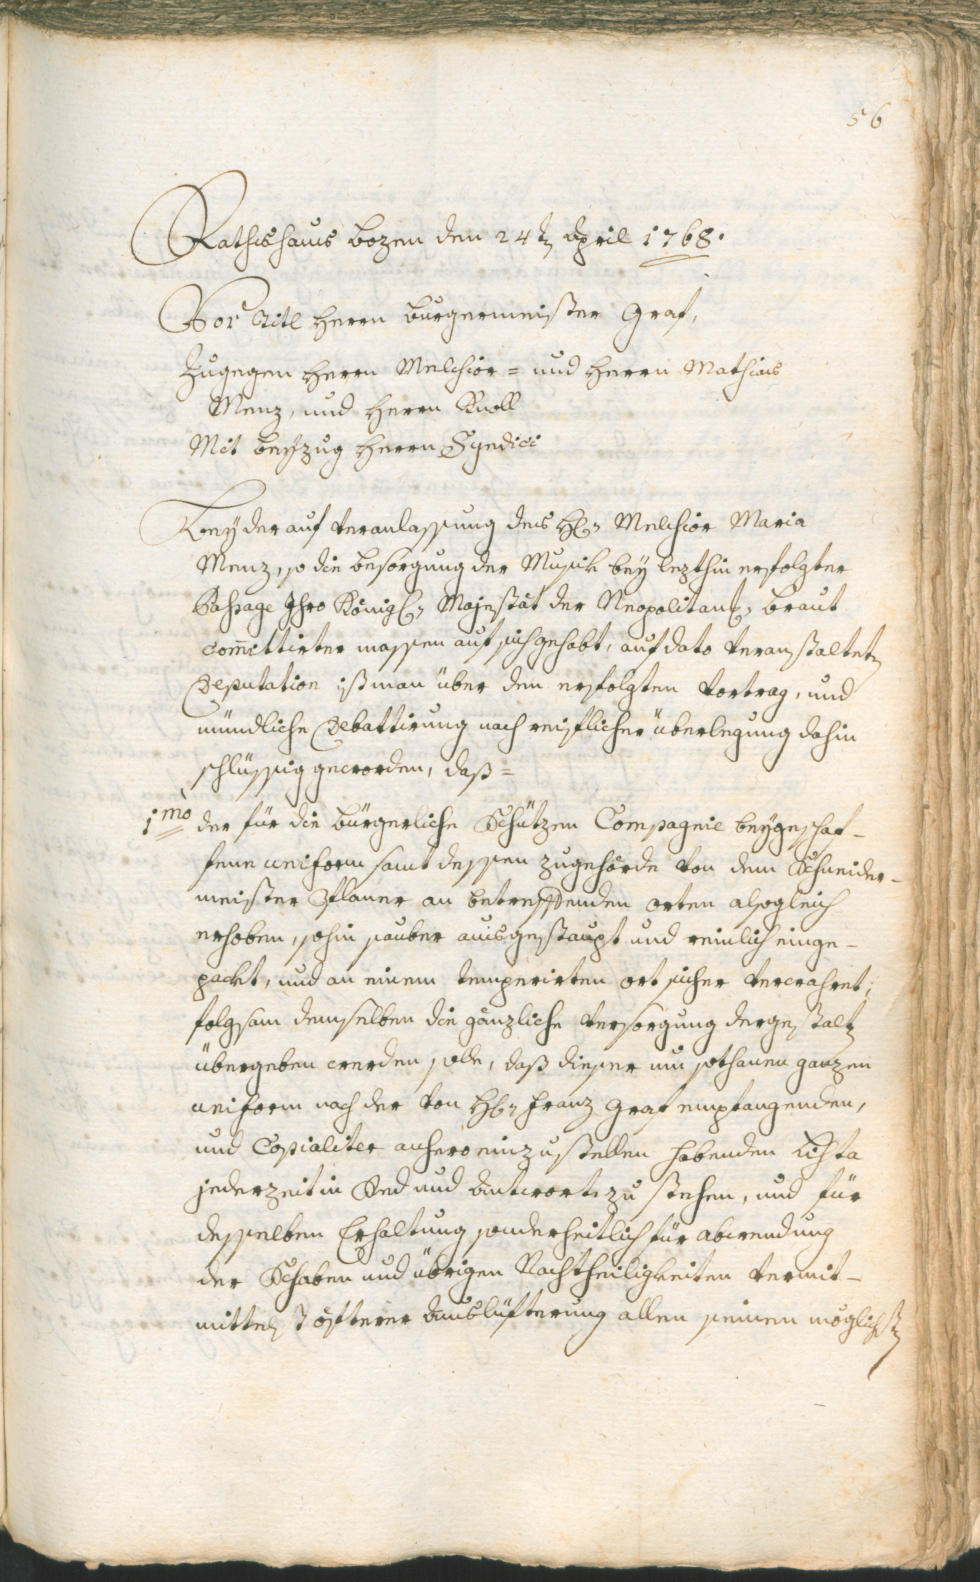 56
Rathshaus Bozen den 24t. April 1768.
Vor Titl Herrn Burgermeister Graf,
zugegen Herrn Melchior = und Herrn Mathias
Menz, und Herrn Knoll
Mit beyzug Herrn Syndici
Bey der auf veranlassung des H: Melchior Maria
Menz, so die besorgung der Musik bey lezthin erfolgter
Passage Ihro Königl: Majestät der Neapolitan: Braut
committirter massen auf sich gehabt, auf dato veranstalteten
Deputation ist man über den erfolgten vortrag, und
mündliche Debattirung nach reifflicher überlegung dahin
schlüssig geworden, daß =
1mò der für die bürgerliche Schützen Compagnie beygeschaf-
fene uniform samt dessen zugehörde von dem Schneider-
meister Pfaner an betreffenden orten alsogleich
erhoben, sohin sauber ausgestaupt und reinlich einge-
packt, und an einem temperirten ort sicher verwahret;
folgsam demselben die gänzliche versorgung dergestalt
übergeben werden solle, daß dieser um sothanen ganzen
uniform nach der von H: Franz Graf empfangenden,
und Copialiter anhero einzustellen habenden Lista
jederzeit in Red und Antwort zu stehen, und für
desselben Erhaltung sonderheitlich für abwendung
der Schaben und übrigen Nachtheiligkeiten vermit-
mittels öffterer Auslüfterung allen seinen möglichsten